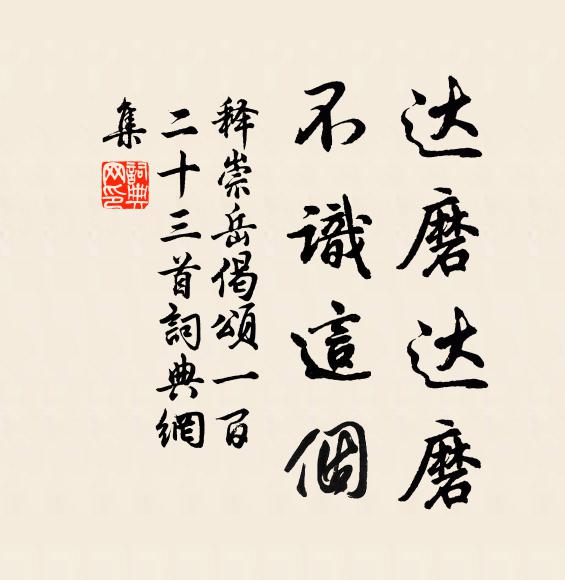 达磨达磨
不識這個
释崇岳偈頌一百
二十三首詞典網
集
詞典
网印